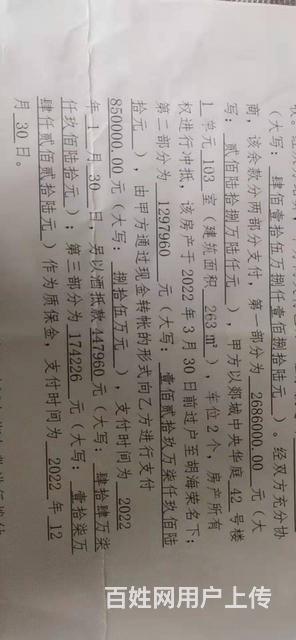 （大写：肆佰壹拾伍万捌仟壹佰捌拾陆元）。经双方充分协
商，该余款分两部分支付，第一部分为 2686000.00 元（大
写：贰佰陆拾捌万陆仟元），甲方以郯城中央华庭 42 号楼
1 单元 103 室（建筑面积 263 ㎡），车位 2 个，房产所有
权进行冲抵，该房产于 2022 年 3 月 30 日前过户至胡海荣名下；
第二部分为 1297960 元（大写：壹佰贰拾玖万柒仟玖佰陆
拾元），由甲方通过现金转帐的形式向乙方进行支付
850000.00 元（大写：捌拾伍万元），支付时间为 2022
年 1 月 30 日，另以酒抵款 447960 元（大写：肆拾肆万柒
仟玖佰陆拾元）；第三部分为 174226 元（大写：壹拾柒万
肆仟贰佰贰拾陆元）作为质保金，支付时间为 2022 年 12
月 30 日。
百姓网用户上传